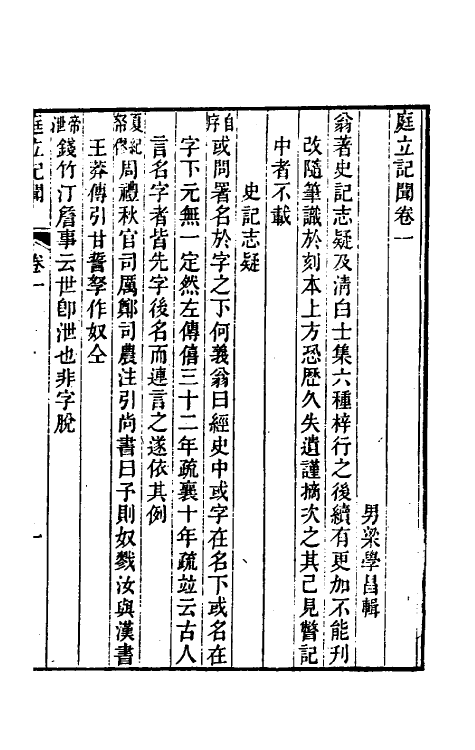 庭立記聞卷一
男梁學昌輯
翁著史記志疑及清白士集六種梓行之後續有更加不能刊
改隨筆識於刻本上方恐歷久失遺謹摘次之其已見瞥記
中者不載
史記志疑
自序或問署名於字之下何義翁曰經史中或字在名下或名在
字下元無一定然左傳僖三十二年疏襄十年疏竝云古人
言名字者皆先字後名而連言之遂依其例
夏紀帝傑周禮秋官司厲鄭司農注引尚書曰予則奴戮汝與漢書
王莽傳引甘誓孥作奴仝
帝泄錢竹汀詹事云世卽泄也非字脫
庭立記聞 卷一 一